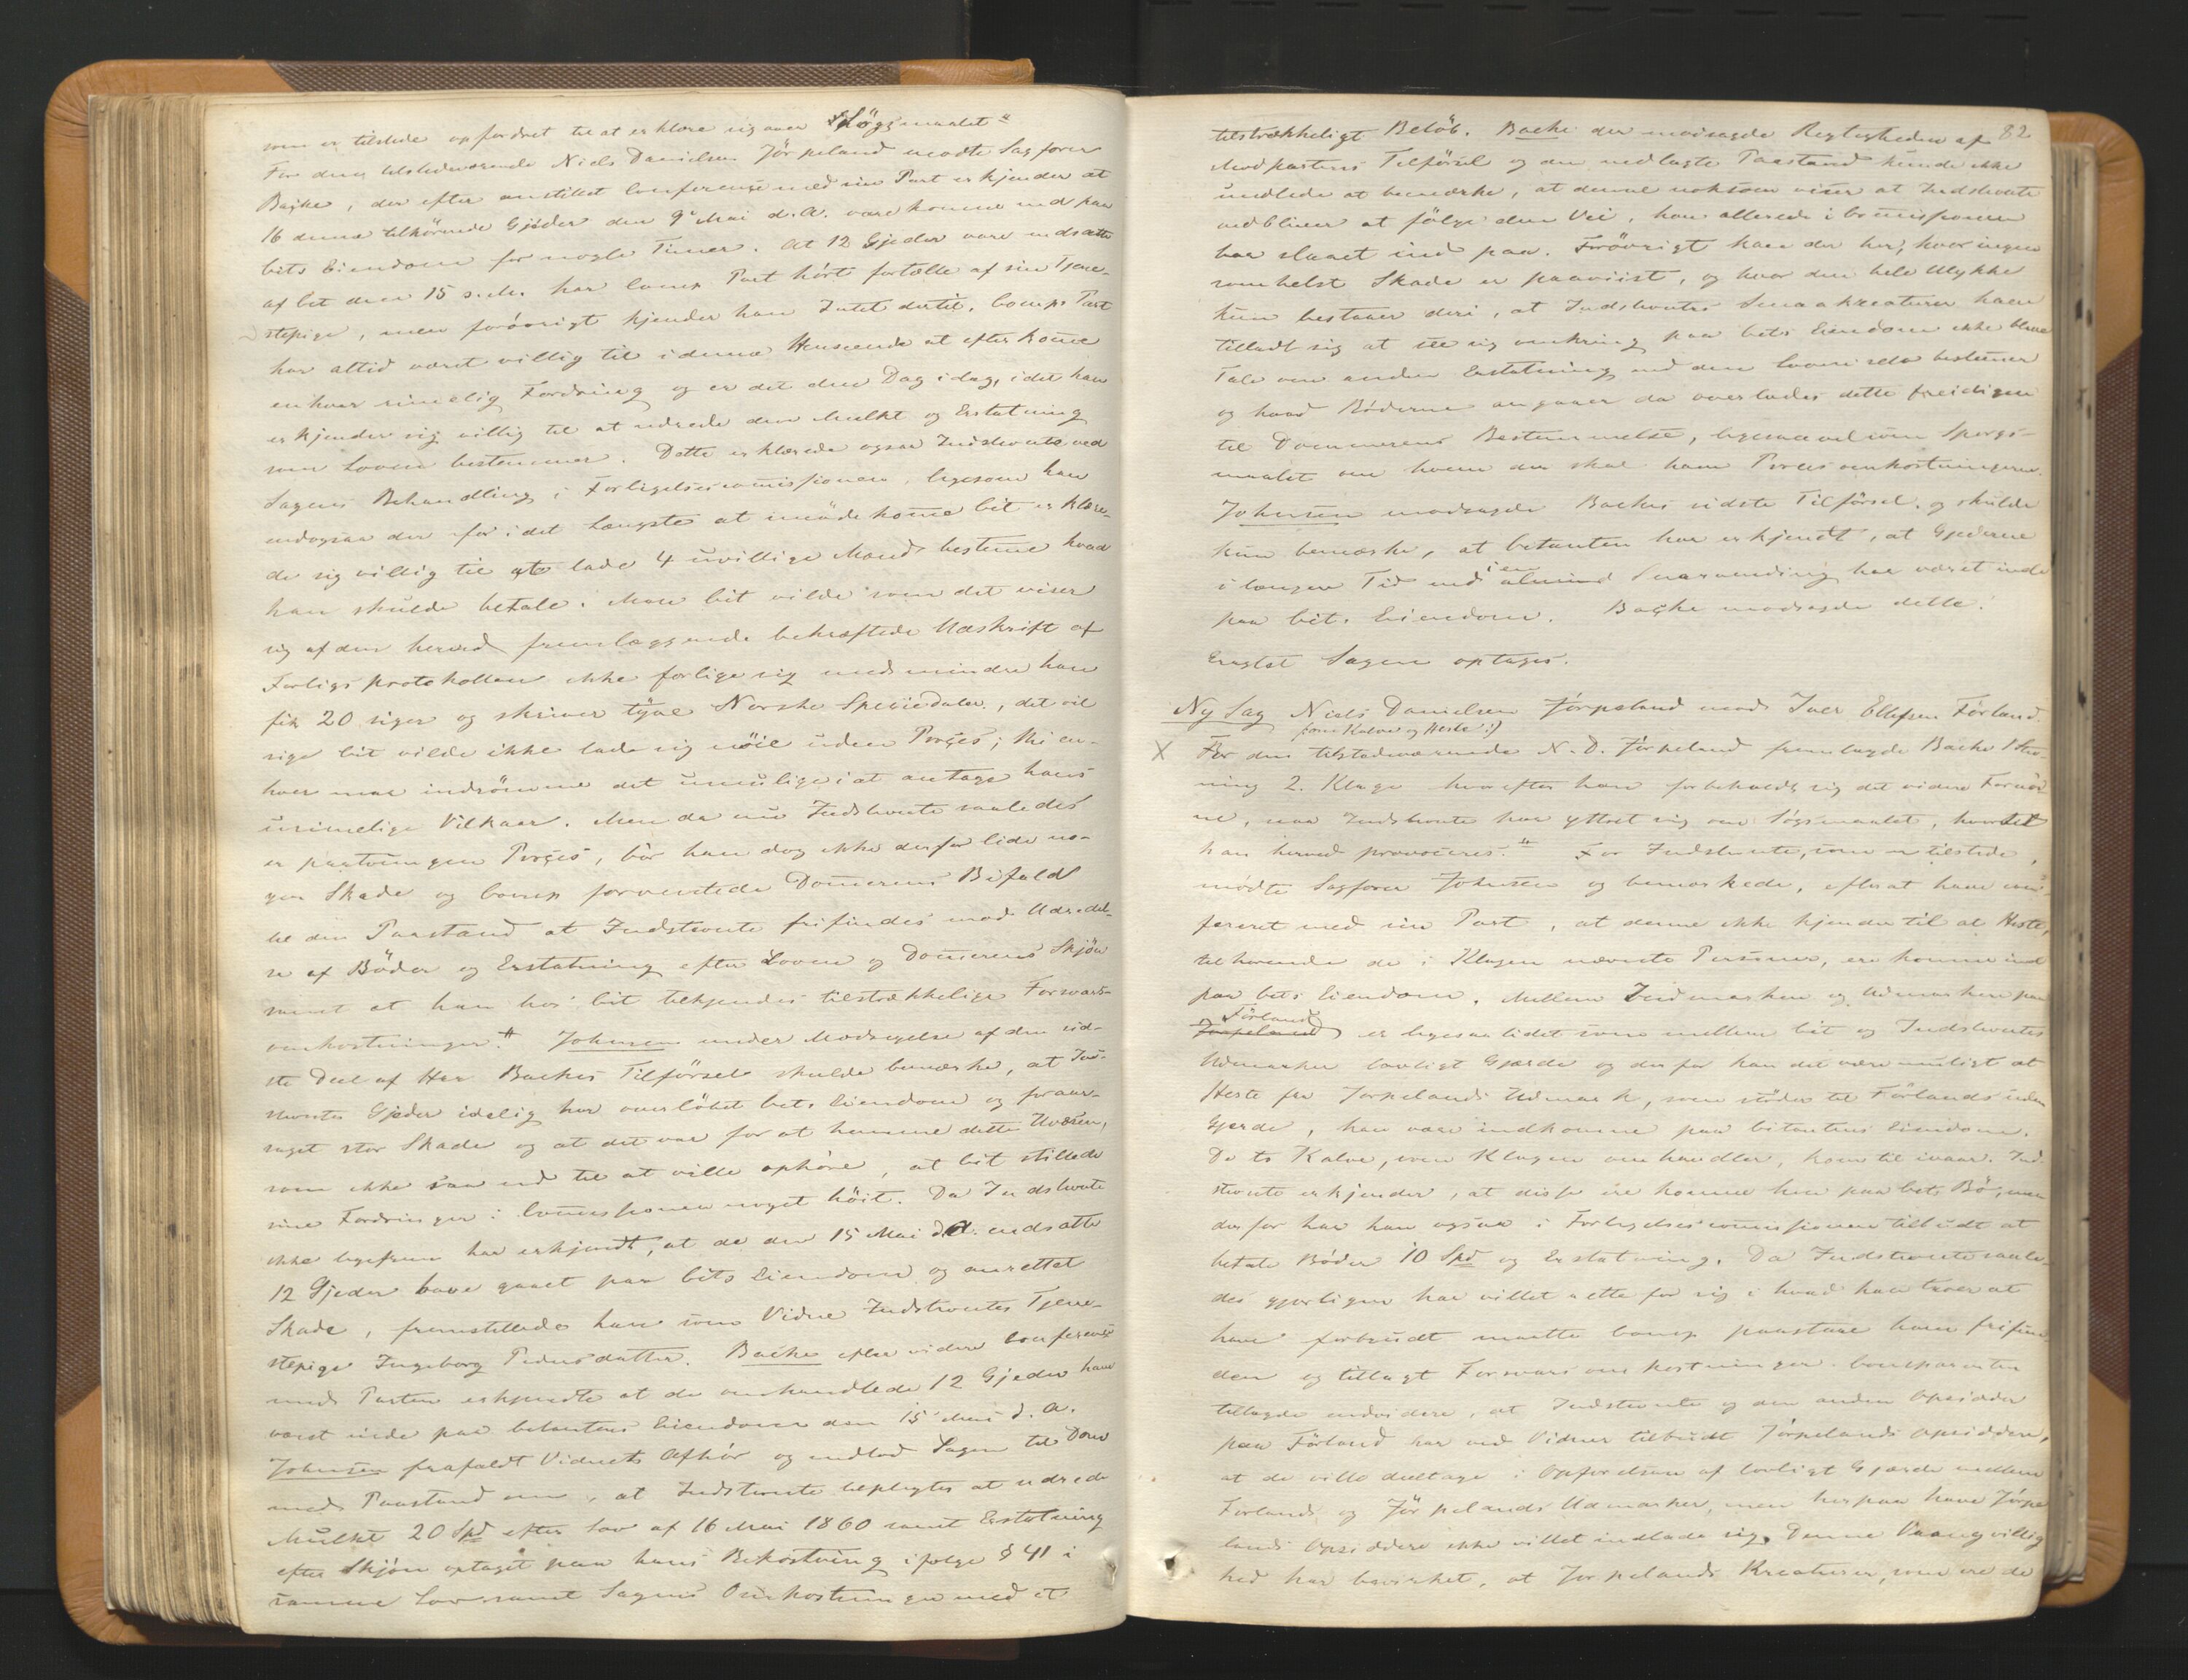 som er tilstede opfordret til at erklære sig over Søgsmaalet"
For den tilstedeværende Niels Danielsen Jörpeland mødte Sagfører
Backe, der efter anstillet Conference med sin Part erkjender at
16 denne tilhörende Gjeder den 9de Mai d.A. vare komne ind paa
Cits Eiendom for nogle Timer. At 12 Gjeder vare indsatte
af Cit den 15 s.M. har Comp. Part hört fortælle af sin Tjene-
stepige, men forövrigt kjender han Intet dertil. Comp. Part
har altid været villig til i denne Henseende at efterkomme
enhver rimelig Fordring og er det den Dag idag, idet han
erkjender sig villig til at udrede den Mulkt og Erstatning
som Loven bestemmer. Dette erklærede ogsaa Indstevnte ved
Sagens Behandling i Forligelsescommissionen, ligesom han
endogsaa der for i det Længste at imödekomme Cit erklære-
de sig villig til at lade 4 uvillige Mænd bestemme hvad
han skulde betale. Men Cit vilde som det viser
sig af den herved fremlæggende bekræftede Udskrift af
Forligsprotokollen ikke forlige sig med mindre han
fik 20 siger og skriver tyve Norske Speciedaler, det vil
sige Cit vilde ikke lade sig nöie uden Proces; thi en-
hver maa indrömme det umulige i at antage hans
urimelige Vilkaar. Men da nu Indstevnte saaledes
er paatvungen Proces, bör han dog ikke derfor lide no-
gen Skade og Comp forventede Dommerens Bifald
til den Paastand at Indstevnte frifindes mod Udredel-
se af Böder og Erstatning efter Loven og Dommerens Skjön
samt at han hos Cit tilkjendes tilstrækkelige Forsvars-
omkostninger." Johnsen under Modsigelse af den sid-
ste Deel af Hr Backes Tilförsel skulde bemærke, at Ind-
stevntes Gjeder idelig har overlöbet Cits Eiendom og foraar-
saget stor Skade og at det var for at hemme dette Uvæsen,
som ikke saa ud til at ville ophöre, at Cit stillede
sine Fordringer i Commissionen noget höit. Da Indstevnte
ikke ligefrem har erkjendt, at de den 15 Mai d.A. indsatte
12 Gjeder have gaaet paa Cits Eiendom og anrettet
Skade, fremstillede han som Vidne Indstevntes Tjene-
stepige Ingeborg Pedersdatter. Backe efter videre Conference
med Parten erkjendte at de omhandlede 12 Gjeder have
været inde paa Citantens Eiendom den 15 Mai d.A.
Johnsen frafaldt Vidnets Afhör og indlod Sagen til Dom
med Paastand om, at Indstevnte tilpligtes at udrede
Mulkt 20 Spd efter Lov af 16 Mai 1860 samt Erstatning
efter Skjön optaget paa hans Bekostning ifölge § 41 i
samme Lov samt Sagens Omkostninger med et
82
tilstrækkeligt Belöb. Backe der modsagde Rigtigheden af
Modpartens Tilförsel og den nedlagte Paastand kunde ikke
undlade at bemærke, at denne noksom viser at Indstevnte
vedbliver at fölge den Vei, han allerede i Commissionen
har slaaet ind paa. Forövrigt kan der her, hvor ingen
somhelst Skade er paaviist, og hvor den hele Ulykke
kun bestaaer deri, at Indstevntes Smaakreaturer have
tilladt sig at see sig omkring paa Cits Eiendom ikke blive
Tale om anden Erstatning end den Loven selv bestemmer
og hvad Böderne angaaer da overlades dette freidigen
til Dommerens Bestemmelse, ligesaavel som Spörgs-
maalet om hvem der skal have Procesomkostningerne.
Johnsen modsagde Backes sidste Tilförsel, og skulde
kun bemærke, at Citanten har erkjendt, at Gjederne
i længere Tid end i en almind Snarvending har været inde
paa Cits Eiendom. Backe modsagde dette.
Eragtet Sagen optages.
Ny Sag Niels Danielsen Jörpeland mod Iver Ellefsen Förland
(som Kalve og Heste :)
X For den tilstedeværende N. D. Jörpeland fremlagde Backe 1 Stev-
ning 2. Klage hvorefter han forbeholdt sig det videre Fornöd-
ne, naar Indstevnte har yttret sig om Sögsmaalet, hvortil
han herved provoceres." For Indstevnte, som er tilstede,
mödte Sagförer Johnsen og bemærkede, efterat have con-
fereret med sin Part, at denne ikke kjender til at Heste,
tilhörende de i Klagen nævnte Personer, ere komne ind
paa Cits Eiendom. Mellem Indmarken og Udmarken paa
Förland
Jörpeland er ligesaa lidet som mellem Cit og Indstevntes
Udmarker lovligt Gjærde og derfor kan det være muligt at
Heste fra Jörpelands Udmark, som stöder til Förlands uden
Gjerde, kan være indkomne paa Citantens Eiendom.
De to Kalve, som Klagen omhandler, kom til ivaar. Ind-
stevnte erkjender, at disse ere komne hen paa Cits Bö, men
derfor har han ogsaa i Forligelsescommissionen tilbudt at
betale Böder 10 Spd og Erstatning. Da Indstevnte saale-
des gjerligen har villet rette for sig i hvad han troer at
have forbrudt maatte Comp paastaae ham frifun-
den og tillagt Forsvarsomkostninger. Comparenten
tillagde endvidere, at Indstevnte og den anden Opsidder
paa Förland har ved Vidner tilbudt Jörpelands Opsiddere,
at de ville deeltage i Opförelsen af lovligt Gjærde mellem
Förlands og Jörpelands Udmarker, men herpaa have Jörpe
lands Opsiddere ikke villet indlade sig. Denne Vrangvillig
hed har bevirket, at Jörpelands Kreaturer, som ere de